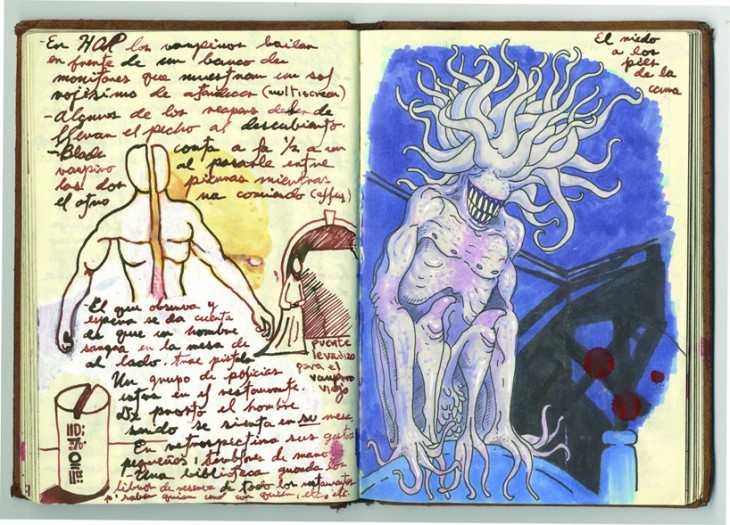 -En HOP los vampiros bailan
en frente de un banco de
monitores que muestran un sol
rojísimo de atardecer (multiscreen)
-Algunos de los reapers deben de
llevan el pecho al descubierto.
-Blade corta a la 1/2 a un
vampiro al pasarle entre
las dos pituras mientras
el otro va comiendo (effy)
-El que observa y
espera se da cuenta
de que un hombre
sangra en la mesa de
al lado. trae pistola
Un grupo de policias
esta en el restaurante.
De pronto el hombre
se sienta en su mesa.
En retrospectiva sus gestos
pequeños: temblores de mano
Una biblioteca guarda los
libros de reserva de todo los restaurantes
p' saber quien cenó con quien, etc. etc.
puente
levadizo
para el
vampiro
viejo
El miedo
a los
pies
de la
cama